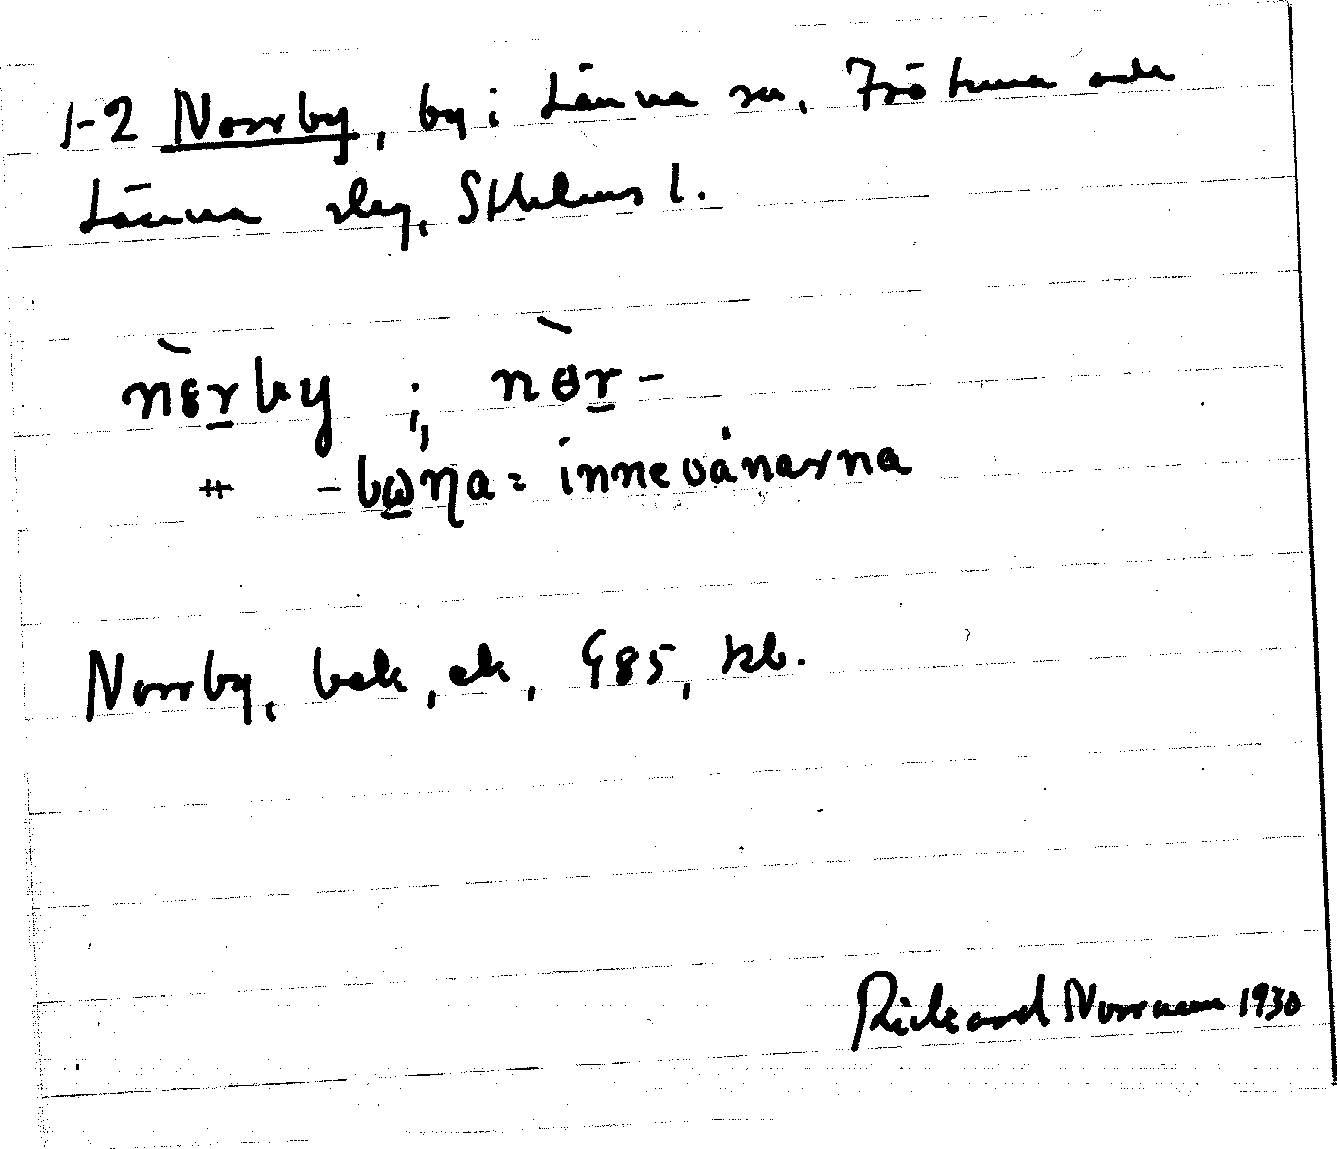 1-2 Norrby, by i Länna sn, Frötuna och
Länna slg, Sthlms l.
nèrby ; nèr-
# -bωηa = innevånarna
Norrby, bek, ek, 985, kb.
Rickard Norman 1930